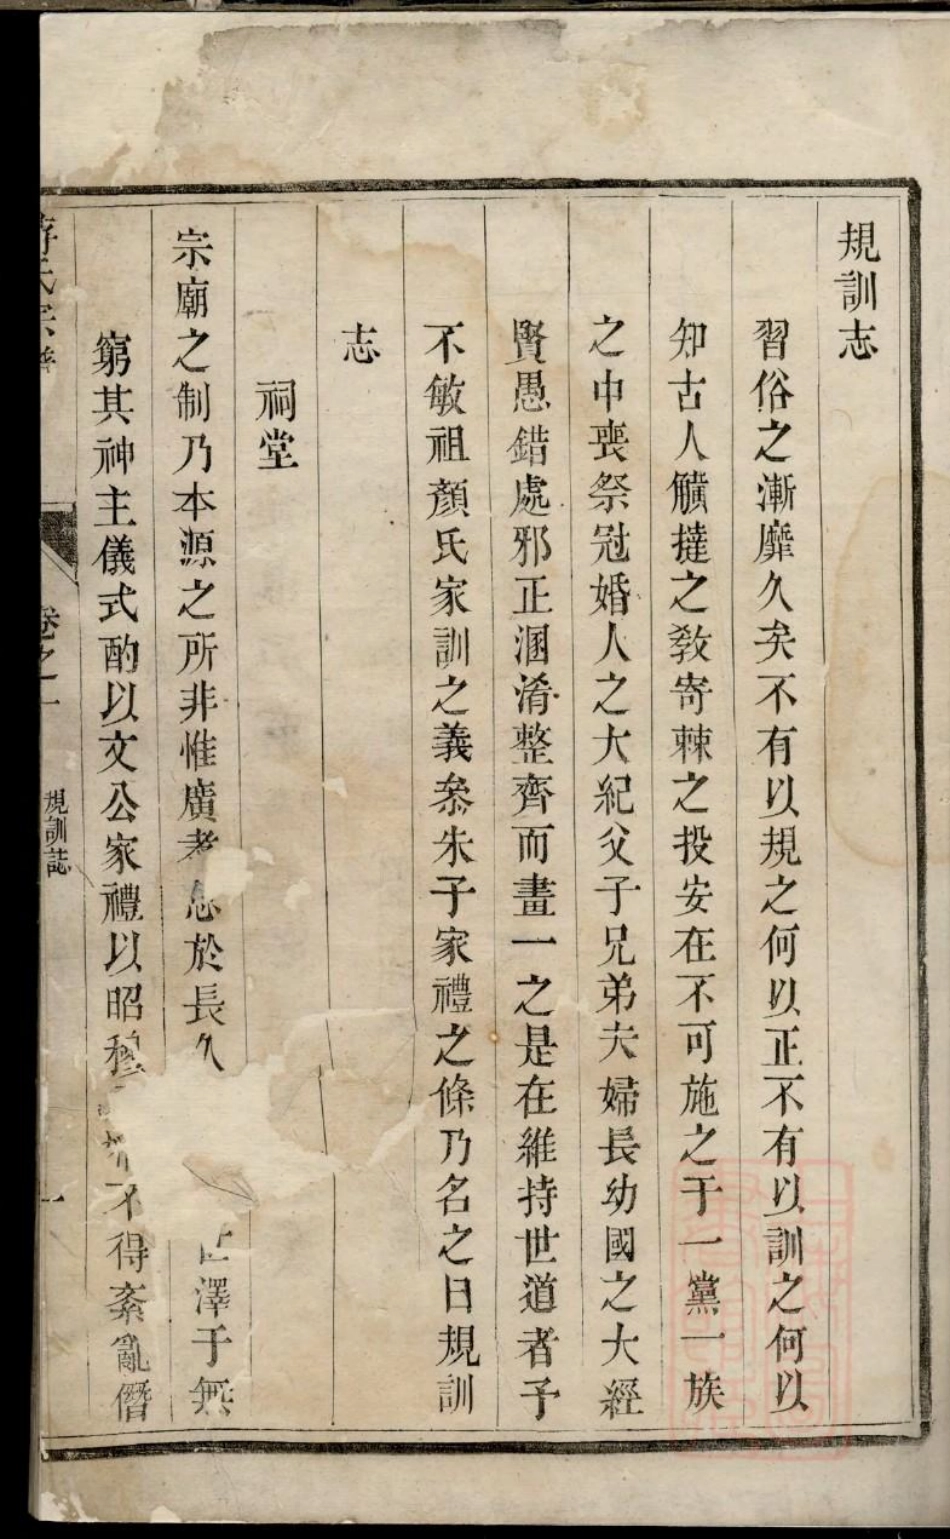 規訓志
習俗之漸靡久矣不有以規之何以正不有以訓之何以
知古人觵撻之敎寄棘之投安在不可施之于一黨一族
之中喪祭冠婚人之大紀父子兄弟夫婦長幼國之大經
賢愚錯處邪正溷淆整齊而畫一之是在維持世道者予
不敏祖顏氏家訓之義叅朱子家禮之條乃名之曰規訓
志
祠堂
宗廟之制乃本源之所非惟廣孝思於長久世澤于無
窮其神主儀式酌以文公家禮以昭穆不得紊亂僭
氏宗譜 卷之一 規訓誌 一